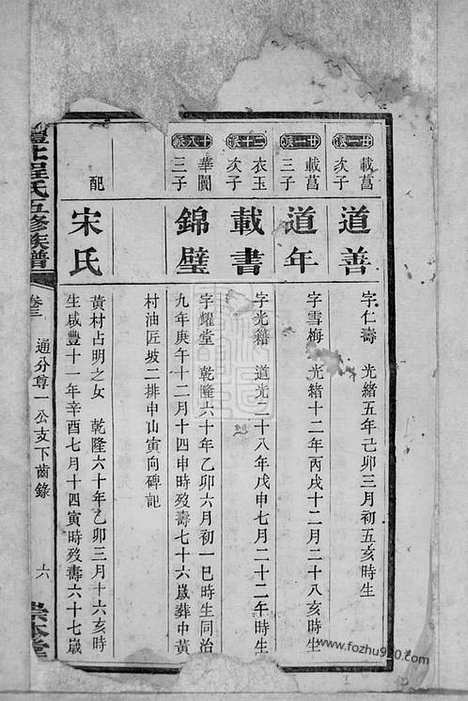 廿一派
載菖
次子
道善
字仁壽 光緒五年己卯三月初五亥時生
廿一派
載菖
三子
道年
字雪梅 光緒十二年丙戌十二月二十八亥時生
二十派
衣玉
次子
載書
字光籍 道光二十八年戊申七月二十二午時生
十八派
華閬
三子
錦璧
字耀堂 乾隆六十年乙卯六月初一巳時生同治
九年庚午十二月十四申時歿壽七十六歲葬中黃
村油匠坡二排申山寅向碑記
配
宋氏
黃村占明之女 乾隆六十年乙卯三月十六亥時
生咸豐十一年辛酉七月十四寅時歿壽六十七歲
澧北程氏五修族譜
卷三
通分尊一公支下齒錄
六
崇本堂
www.fozhu920.com